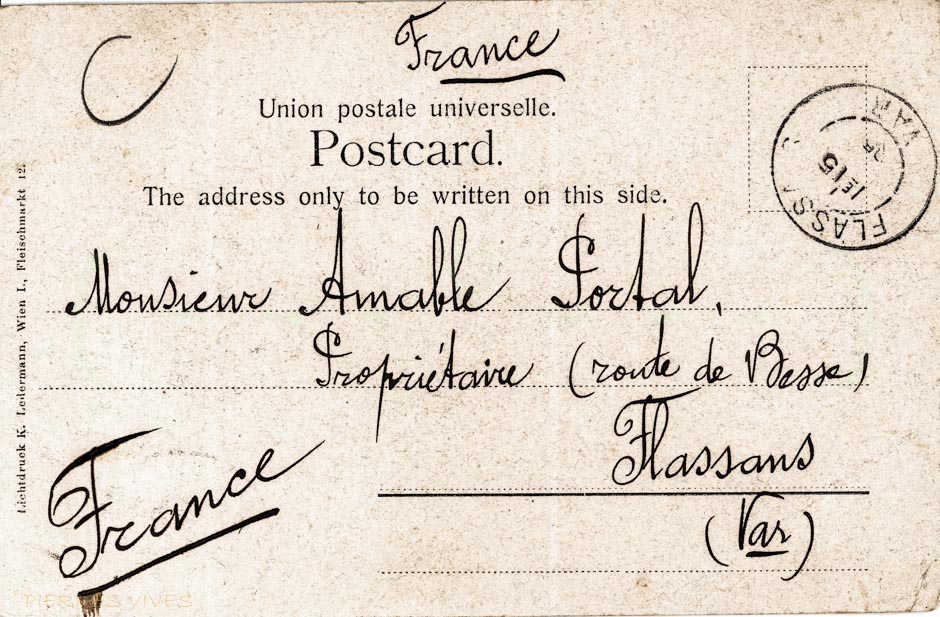 France
Union postale universelle.
Postcard.
The address only to be written on this side.
Monsieur Amable Portal,
Propriétaire (route de Besse)
Flassans
(Var)
France
Lichtdruck K. Ledermann, Wien I., Fleischmarkt 12.
FLASSA
VAR
15
PIERRES VIVES